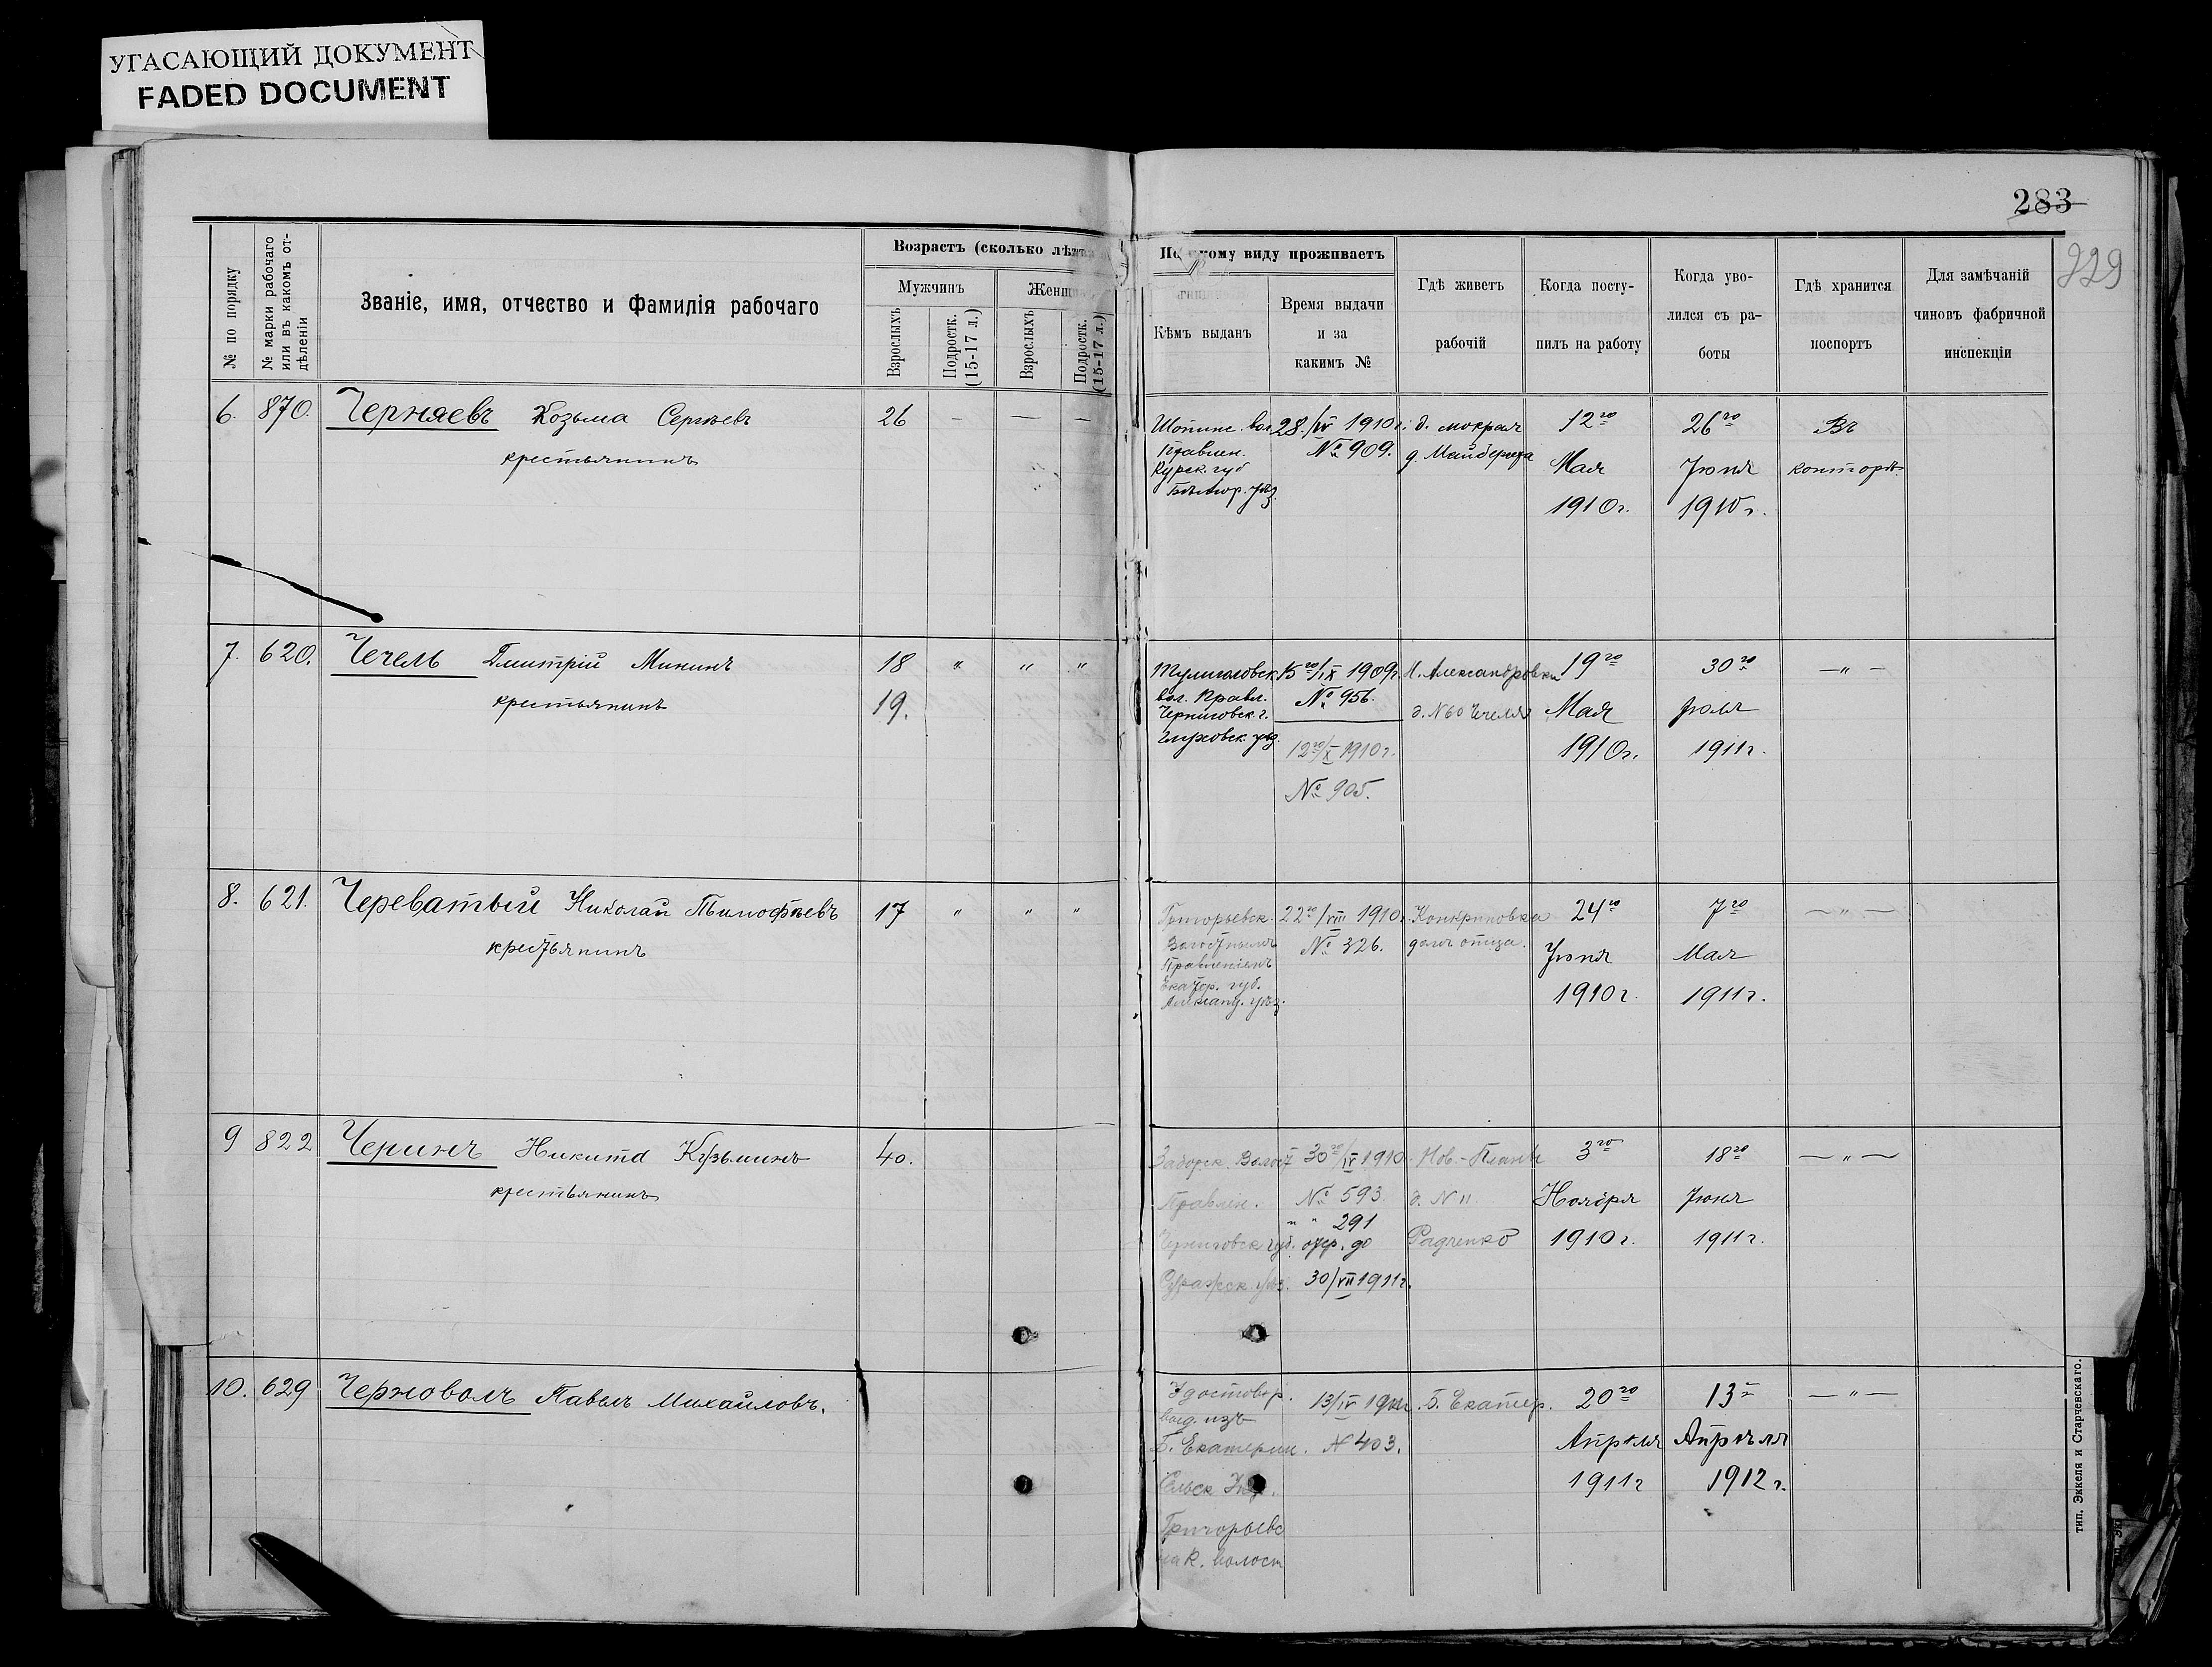 УГАСАЮЩИЙ ДОКУМЕНТ
FADED DOCUMENT
283
329
№ по порядку
№ марки рабочаго
или въ какомъ от-
дѣленіи
Званіе, имя, отчество и фамилія рабочаго
Возрастъ (сколько лѣтъ
Мужчинъ
Женщ
Взрослыхъ
Подростк.
(15-17 л.)
Взрослыхъ
Подростк.
(15-17 л.)
кому виду проживаетъ
Кѣмъ выданъ
Время выдачи
и за
какимъ №
Гдѣ живетъ
рабочій
Когда посту-
пилъ на работу
Когда уво-
лился съ ра-
боты
Гдѣ хранится
поспортъ
Для замѣчаній
чиновъ фабричной
инспекціи
6. 870. Черняевъ Козьма Сергѣевъ 26 — — —
крестьянинъ
вол.
Правлен.
Курск. губ
уѣз.
28/IV 1910г.
№ 909.
д. мокрая
д.
12го
Мая
1910г.
26го
Іюня
1910г.
Въ
конторѣ.
7. 620. Чечель Дмитрій Мининъ 18 " " "
крестьянинъ 19.
Тулиголовск.
вол. Правл.
Черниговск. г.
Глуховск. уѣз.
15го/IX 1909г.
№ 956.
12го/X 1910г.
№ 905.
Александровка
д. №60 Чечеля
19го
Мая
1910г.
30го
Іюля
1911г.
— " —
8. 621. Череватый Николай Тимофѣевъ 17 " " "
крестьянинъ
Григорьевск.
Волостнымъ
Правленіемъ
Екатер. губ.
Александ. уѣз.
22го/VIII 1910г.
№ 326.
Конкриновка
домъ отца.
24го
Іюня
1910г.
7го
Мая
1911г.
— " —
9 822 Черинъ Никита Кузьминъ 40.
крестьянинъ
Волост
Правлен.
Черниговск губ.
уѣз.
30го/IV 1910
№ 593.
" " 291
отср. до
30/VII 1911г.
Нов.-Планъ
д. N 11.
Радченко
3го
Ноября
1910г.
18го
Іюня
1911г.
— " —
10. 629 Черноволъ Павелъ Михайловъ.
Удостовѣр.
выд. изъ
Б. Екатерин.
Сельск
Григорьевс
волост
13/IV 1911г.
N 403.
Б. Екатер.
20го
Апрѣля
1911г
13го
Апрѣля
1912г.
— " —
тип. Эккеля и Старчевскаго.